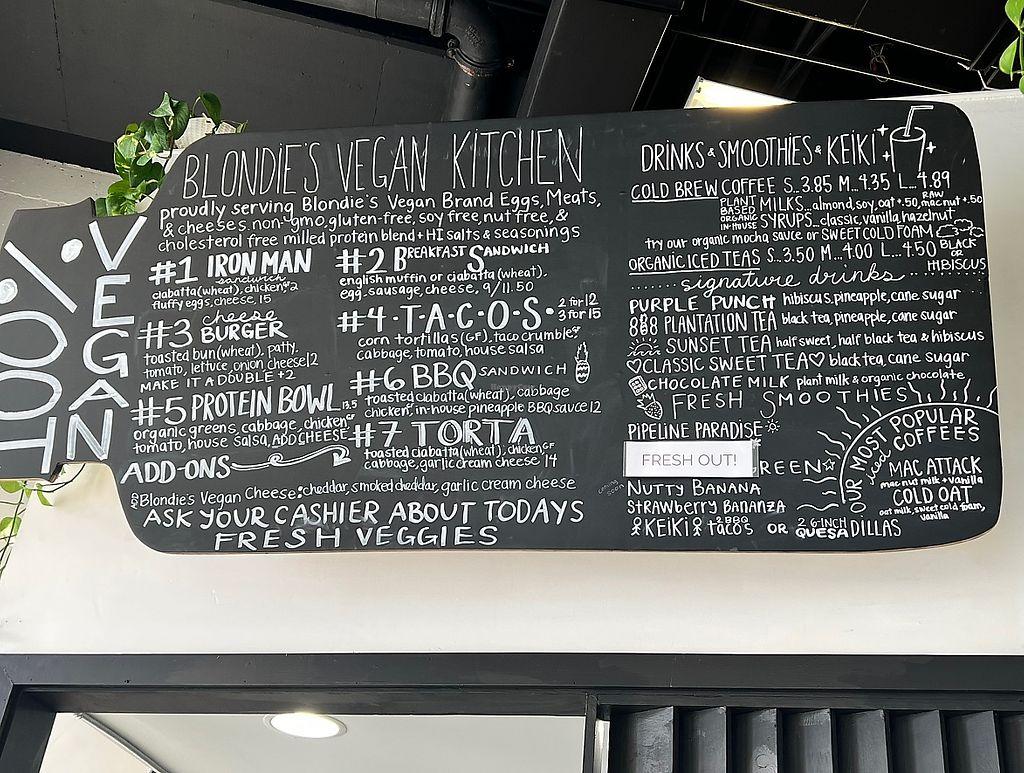 100% VEGAN
BLONDIE'S VEGAN KITCHEN
proudly serving Blondie's Vegan Brand Eggs, Meats,
& cheeses. non-gmo, gluten-free, soy free, nut free, &
cholesterol free milled protein blend + HI salts & seasonings
#1 IRON MAN
sandwich
ciabatta(wheat), chicken,
fluffy eggs, cheese, 15
#2 BREAKFAST SANDWICH
english muffin or ciabatta (wheat),
egg, sausage, cheese, 9/11.50
#3 cheese BURGER
toasted bun(wheat), patty,
tomato, lettuce, onion, cheese 12
MAKE IT A DOUBLE +2
#4 • T•A•C•O•S • 2 for 12
3 for 15
corn tortillas (GF), taco crumble,
cabbage, tomato, house salsa
#5 PROTEIN BOWL 13.5
organic greens, cabbage, chicken,
tomato, house salsa, ADD CHEESE
#6 BBQ SANDWICH
toasted ciabatta (wheat), cabbage
chicken, in-house pineapple BBQ sauce 12
#7 TORTA
toasted ciabatta (wheat), chicken, GF
cabbage, garlic cream cheese 14
ADD-ONS
Blondie's Vegan Cheese: cheddar, smoked cheddar, garlic cream cheese
ASK YOUR CASHIER ABOUT TODAYS
FRESH VEGGIES
DRINKS & SMOOTHIES & KEIKI
COLD BREW COFFEE S..3.85 M..4.35 L..4.89
PLANT BASED MILKS...almond, soy, oat +.50, RAW mac nut +.50
ORGANIC IN-HOUSE SYRUPS..classic, vanilla, hazelnut
try our organic mocha sauce or SWEET COLD FOAM
ORGANIC ICED TEAS S..3.50 M..4.00 L..4.50 BLACK OR HIBISCUS
signature drinks
PURPLE PUNCH hibiscus, pineapple, cane sugar
PLANTATION TEA black tea, pineapple, cane sugar
SUNSET TEA half sweet, half black tea & hibiscus
CLASSIC SWEET TEA black tea, cane sugar
CHOCOLATE MILK plant milk & organic chocolate
FRESH SMOOTHIES
PIPELINE PARADISE
FRESH OUT!
GREEN
coming soon
NUTTY BANANA
STRAWBERRY BANANZA
KEIKI 2 BBQ tacos OR 2 6-INCH QUESADILLAS
OUR MOST POPULAR
iced COFFEES
MAC ATTACK
mac nut milk + vanilla
COLD OAT
oat milk, sweet cold foam,
vanilla